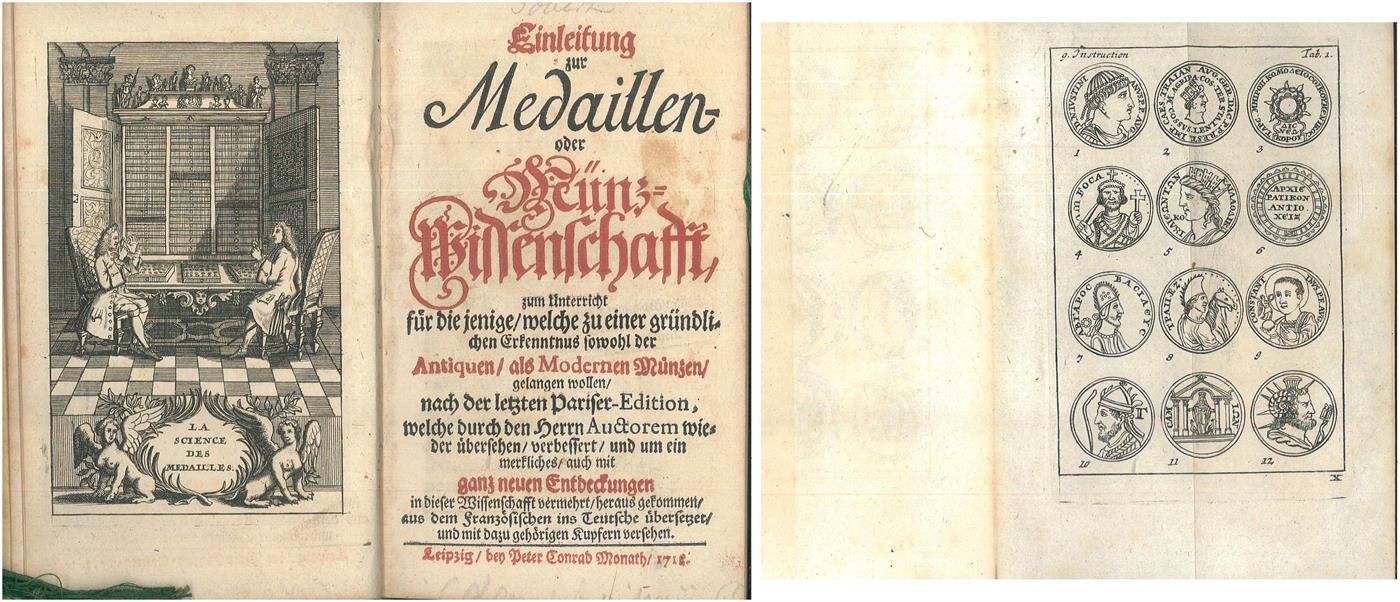 LA
SCIENCE
DES
MEDAILLES.
Einleitung
zur
Medaillen-
oder
Münz-
Wissenschafft,
zum Unterricht
für die jenige/ welche zu einer gründli-
chen Erkenntnus sowohl der
Antiquen/ als Modernen Münzen/
gelangen wollen/
nach der letzten Pariser-Edition,
welche durch den Herrn Auctorem wie-
der übersehen/ verbessert/ und um ein
merkliches/ auch mit
ganz neuen Entdeckungen
in dieser Wissenschafft vermehrt/ heraus gekommen/
aus dem Französischen ins Teutsche übersetzet/
und mit dazu gehörigen Kupfern versehen.
Leipzig/ bey Peter Conrad Monath/ 1718.
9. Instruction
Tab. 1.
1
2
3
FOCA
4
5
ΑΡΧΙΕ
ΡΑΤΙΚΟΝ
ΑΝΤΙΟ
ΧΕΙΣ
6
7
8
CONSTANT
9
10
11
12
X